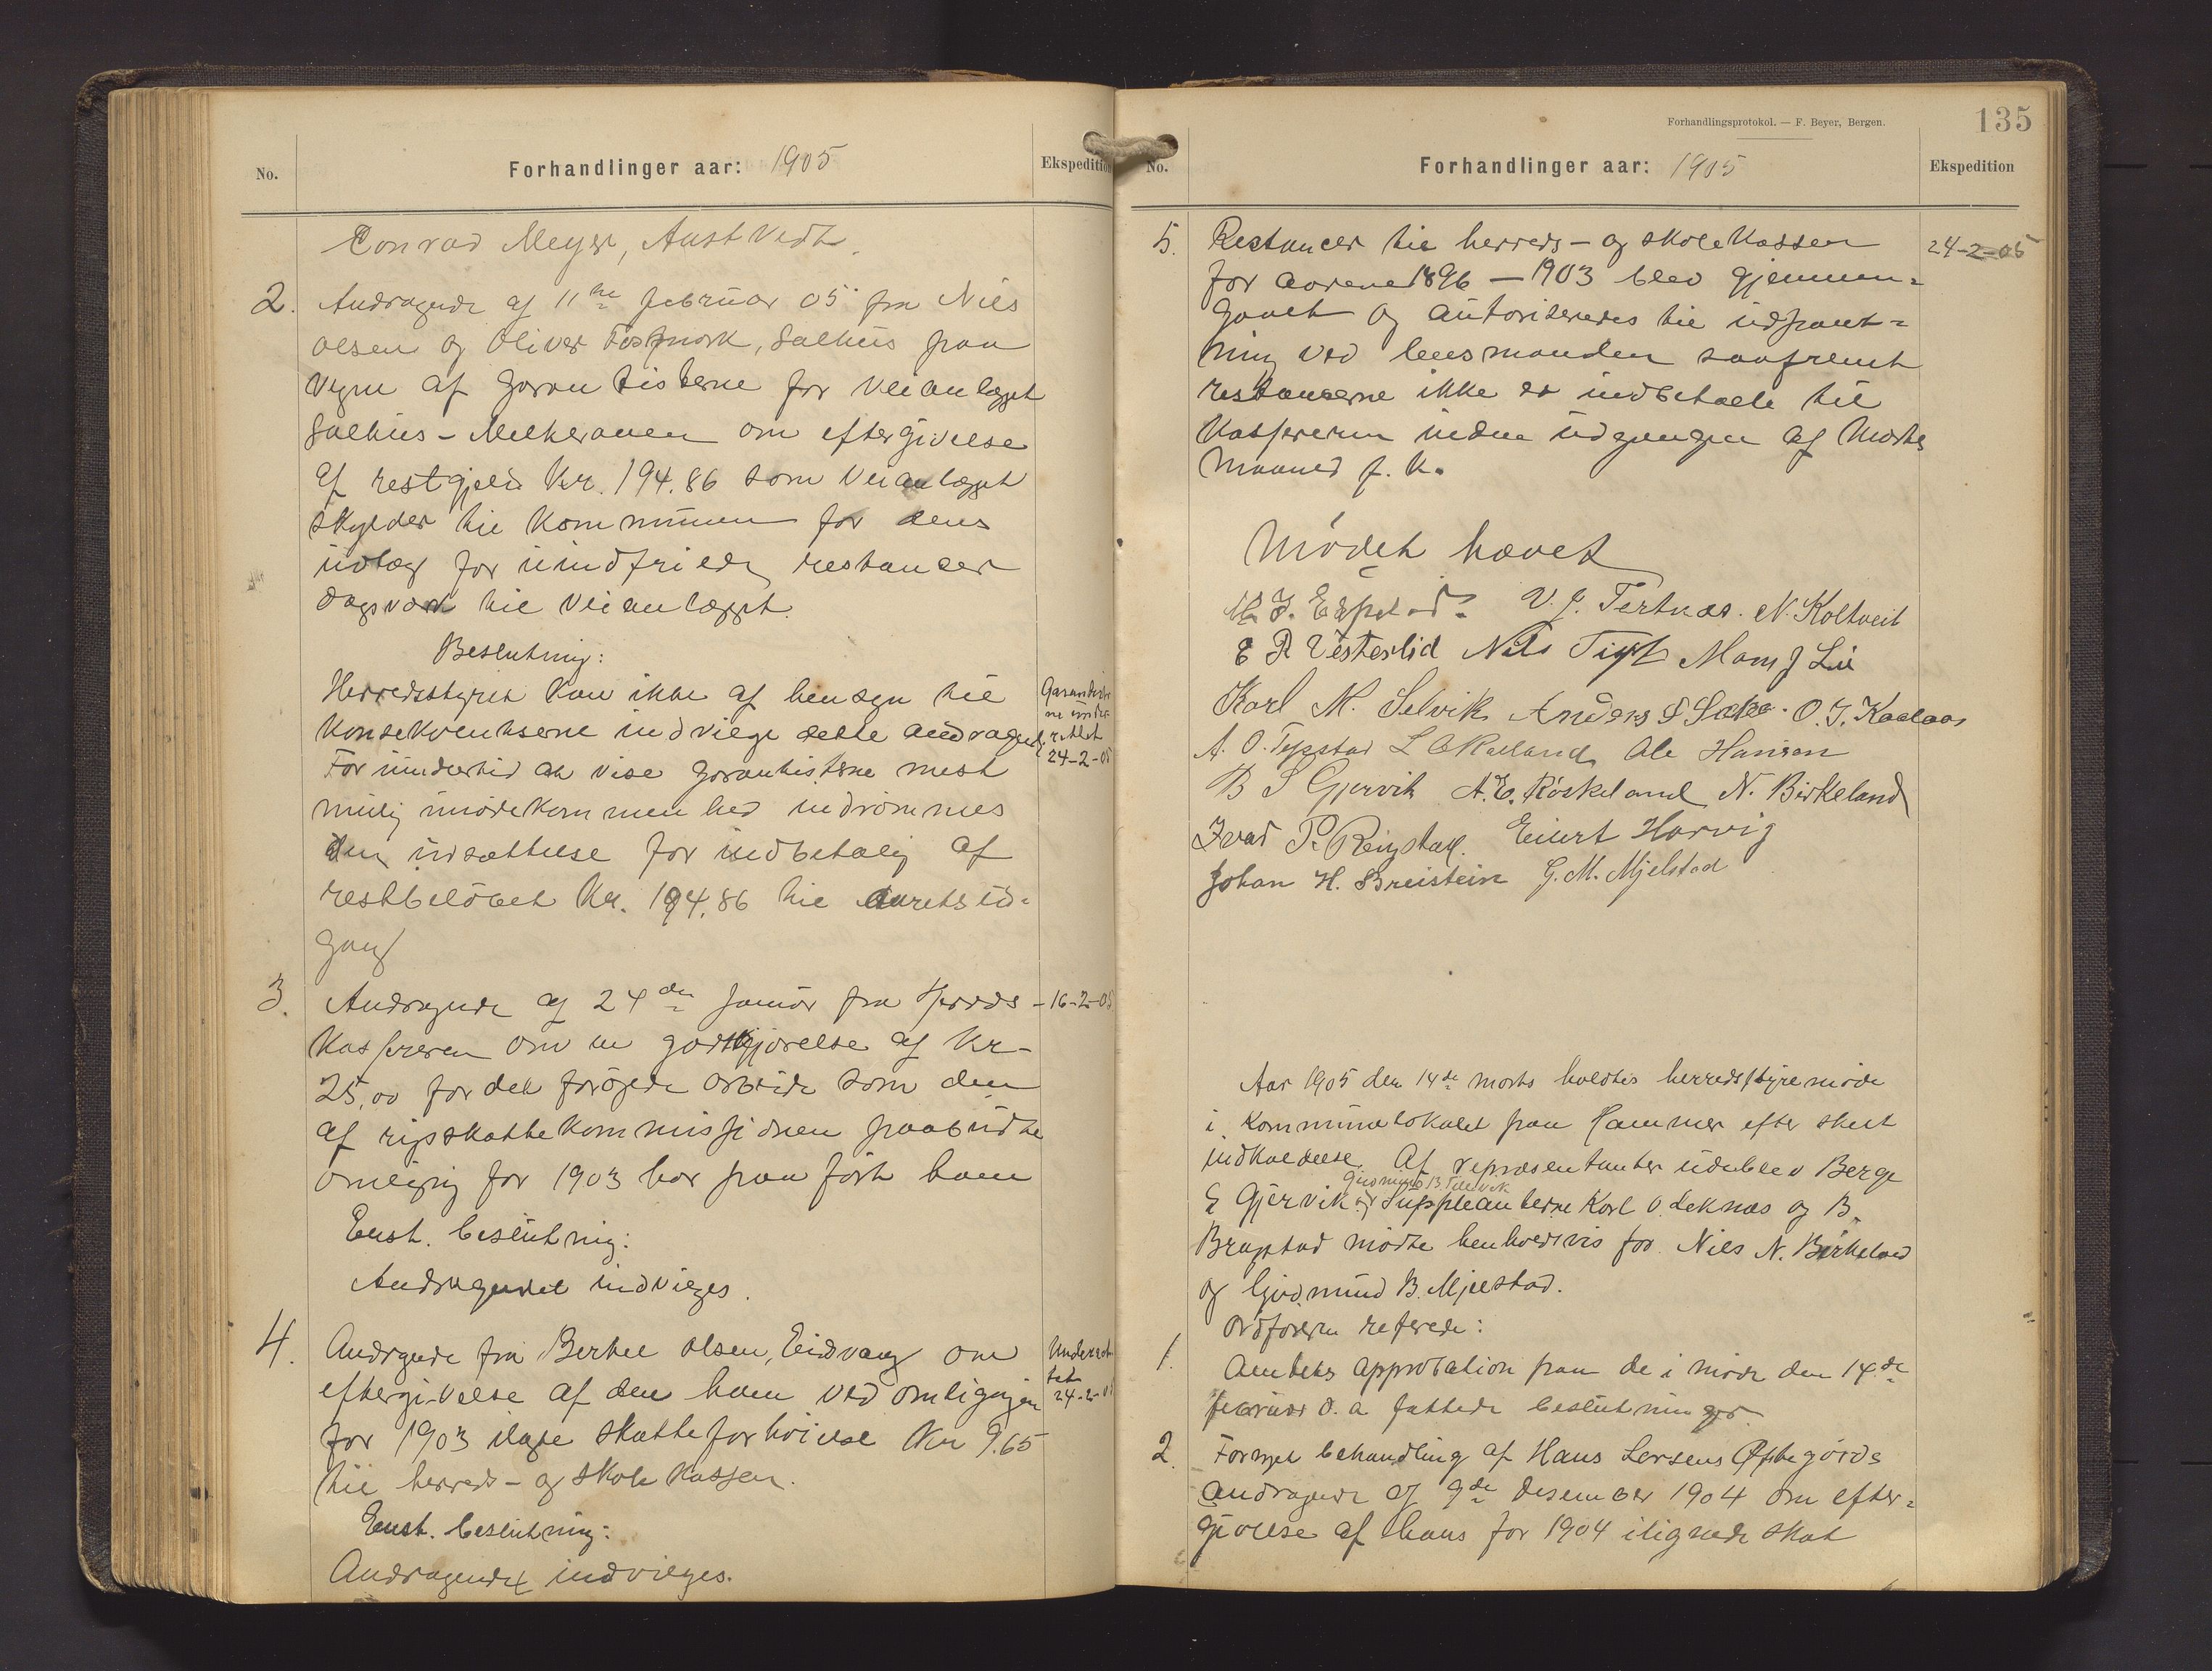 No.
Forhandlinger aar: 1905
Ekspedition
Conrad Meyer, Austvedt.
2. Andragende af 11te februar 05 fra Nils
Olsen og Oliver Tosqmork, Salhus paa
vegne af garantisterne for veianlægget
Salhus-Melkeraaen om eftergivelse
af restgjeld Kr. 194.86 som veianlægget
skylder til kommunen for dens
udlæg for uindfriede restancer
dagsværk til veianlægget.
Beslutning:
Herredsstyret kan ikke af hensyn til
konsekventserne indvilge dette andragende.
For imidlertid at vise garantisterne mest
mulig imødekommenhed indrømmes
den udsættelse for indbetaling af
restbeløbet Kr. 194.86 til aarets ud-
gang
Garantister
ne under-
rettet
24-2-05
3. Andragende af 24de januar fra Herreds-
kassereren om en godtgjørelse af Kr-
25,00 for det forøgede arbeide som den
af rigsskattekommissionen paabudte
omligning for 1903 har paaført ham
Enst. beslutning:
Andragendet indvilges.
-16-2-05
4. Andragende fra Berthel Olsen, Eidsvaag om
eftergivelse af den ham ved omligningen
for 1903 ilagte skatteforhøielse Kr 9.65
til herreds- og skolekassen.
Enst. beslutning:
Andragendet indvilges.
Underret-
tet
24-2-05
Forhandlingsprotokol. — F. Beyer, Bergen.
135
No.
Forhandlinger aar: 1905
Ekspedition
5. Restancer til herreds- og skolekassen
for aarene 1896 — 1903 blev gjennem-
gaaet og autoriseredes til udpant-
ning ved lensmanden saafremt
restancerne ikke er indbetalt til
kassereren inden udgangen af Marts
maaned f. k.
24-2-05
Mødet hævet
M. J. Espelid. V. J. Tertnæs. N. Koltveit
E R Vesterlid Nils Mons J Lie
Karl M. Selvik Anders S O. J. Kaalaas
A. O. Tepstad L O Kaland, Ole Hansen
B S Gjervik A. E. Røskeland N. Birkeland
Ivar P. Reigstad. Einert Horvig
Johan H. Breistein G. M. Mjelstad
Aar 1905 den 14de marts holdtes herredsstyremøde
i kommunelokalet paa Hammer efter skeet
indkaldelse. Af repræsentanter udeblev Berge
Gudmund B. Tellevik
E Gjervik og Suppleanterne Karl O. Leknæs og B.
Brugstad mødte henholdsvis for Nils N. Birkeland
og Gudmund B. Mjelstad.
Ordføreren referede:
1. Amtets approbation paa de i møde den 14de
februar d. a fattede beslutninger.
2. Fornyet behandling af Hans Larsens Østegårds
andragende af 9de desember 1904 om efter-
givelse af hans for 1904 ilignede skat